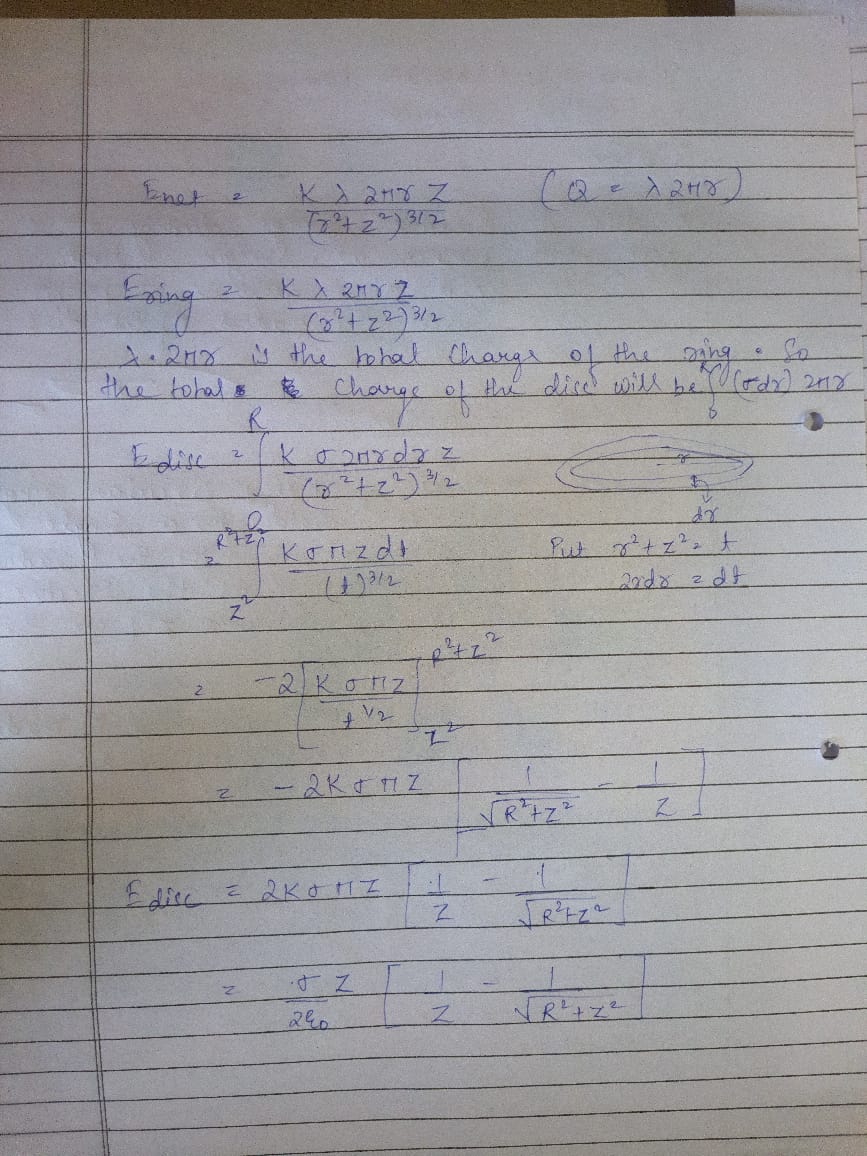 Enet = Kλ2πr Z / (r²+z²)^3/2 (Q = λ2πr)
Ering = Kλ2πr Z / (r²+z²)^3/2
λ.2πr is the total charge of the ring. So
the total charge of the disc will be ∫₀ᴿ (σdr) 2πr
Edisc = ∫₀ᴿ K σ2πrdr z / (r²+z²)^3/2
r
dr
= ∫_{z²}^{R²+z²} Kσπzdt / (t)^3/2 Put r²+z² = t
2rdr = dt
= -2 [Kσπz / t^1/2]_{z²}^{R²+z²}
= -2Kσπz [1/√R²+z² - 1/z]
Edisc = 2Kσπz [1/z - 1/√R²+z²]
= σz/2ε₀ [1/z - 1/√R²+z²]